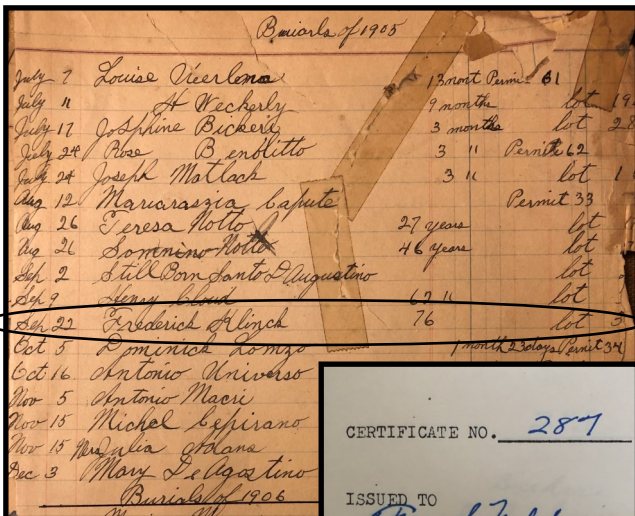 Burials of 1905
July 7 Louise 13 mont Permit 61
July 11 H Weckerly 9 months lot 19
July 17 JoSphine Bickera 3 months lot 28
July 24 Rose Benolitto 3 " Permit 62
July 24 Joseph Matlack 3 " lot 1
Aug 12 Capute Permit 33
Aug 26 Teresa Notto 27 years lot
Aug 26 Notto 46 years lot
Sep 2 Still Born Santo D Augustino lot
Sep 9 Henry Cloud 62 " lot
Sep 22 Frederick Klinck 76 lot 3
Oct 5 Dominick Lomzo 1 month 23 days Permit 34
Oct 16 Antonio Universo
Nov 5 Antonio Macri
Nov 15 Michel Cepirano
Nov 15 Mrs Julia Adana
Dec 3 Mary De Agostino
Burials of 1906
CERTIFICATE NO. 287
ISSUED TO